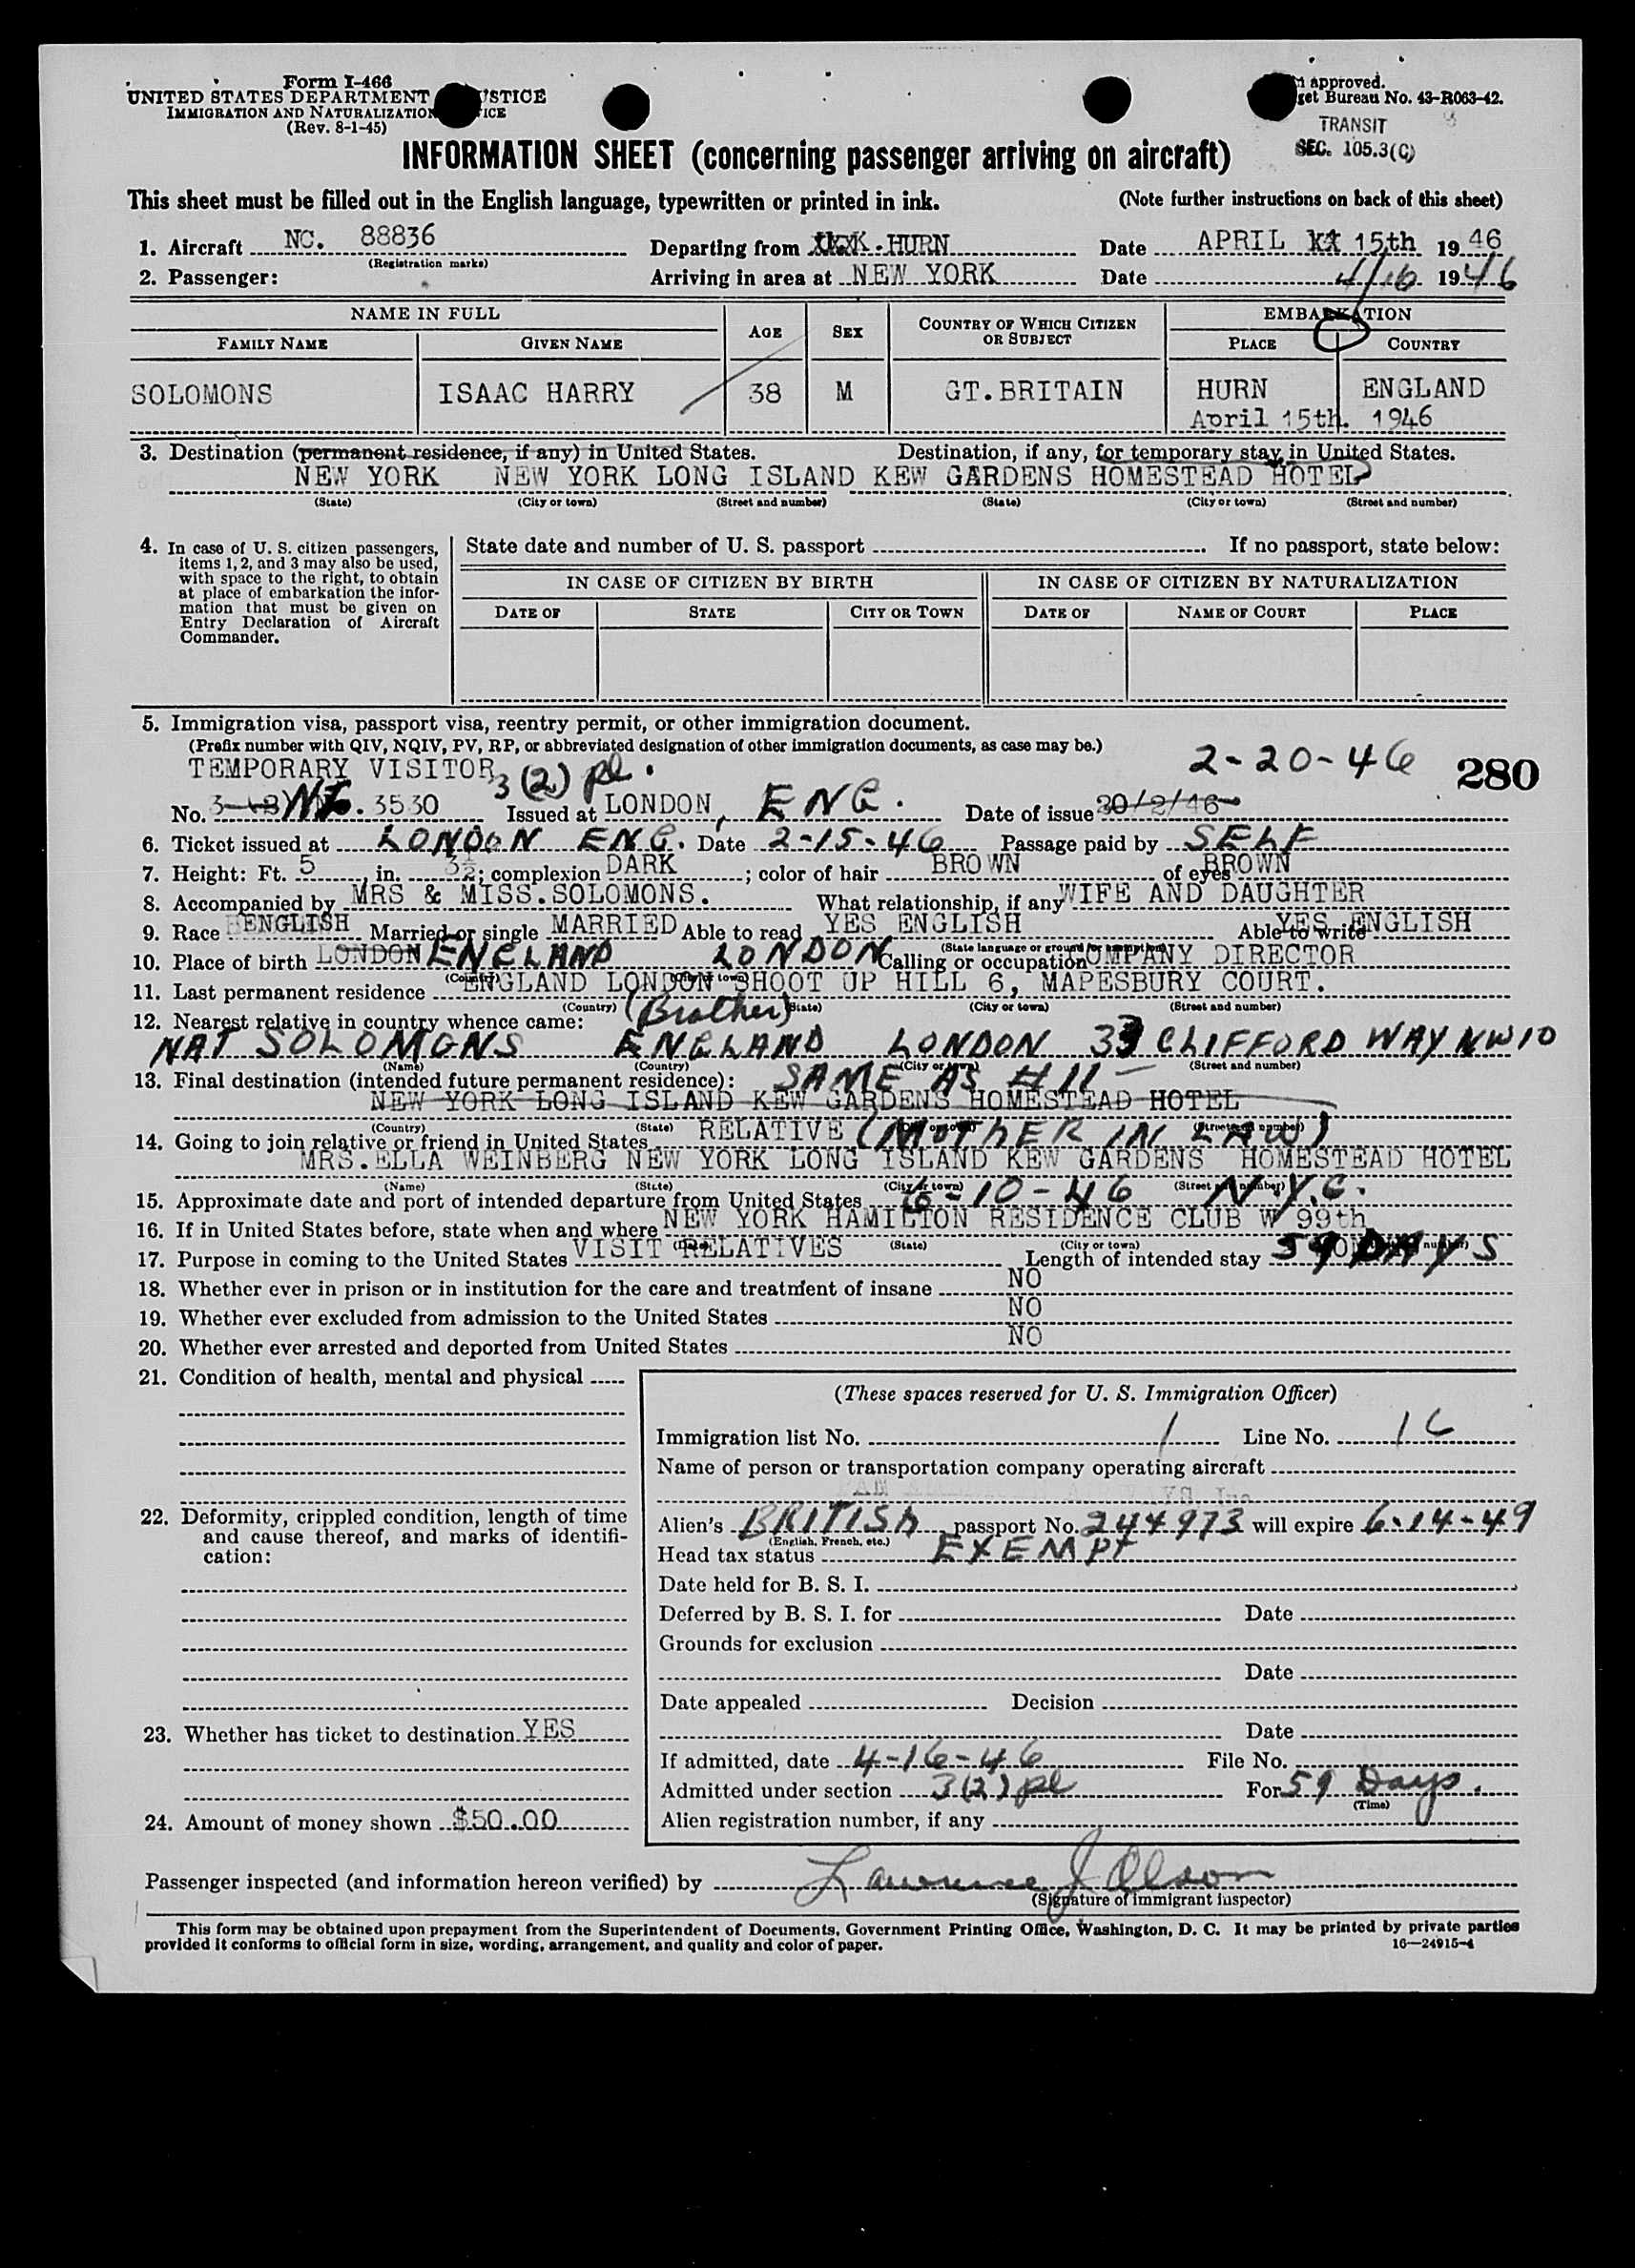 Form I-466
UNITED STATES DEPARTMENT USTICE
IMMIGRATION AND NATURALIZATION ICE
(Rev. 8-1-45)
approved.
get Bureau No. 43-R063-42.
TRANSIT
SEC. 105.3(C)
INFORMATION SHEET (concerning passenger arriving on aircraft)
This sheet must be filled out in the English language, typewritten or printed in ink. (Note further instructions on back of this sheet)
1. Aircraft NC. 88836 Departing from HURN Date APRIL 15th 1946
(Registration marks)
2. Passenger: Arriving in area at NEW YORK Date 4/16 1946
NAME IN FULL AGE SEX COUNTRY OF WHICH CITIZEN OR SUBJECT EMBARKATION
FAMILY NAME GIVEN NAME PLACE COUNTRY
SOLOMONS ISAAC HARRY 38 M GT.BRITAIN HURN ENGLAND
April 15th. 1946
3. Destination (permanent residence, if any) in United States. Destination, if any, for temporary stay in United States.
NEW YORK NEW YORK LONG ISLAND KEW GARDENS HOMESTEAD HOTEL
(State) (City or town) (Street and number) (State) (City or town) (Street and number)
4. In case of U. S. citizen passengers, items 1, 2, and 3 may also be used, with space to the right, to obtain at place of embarkation the information that must be given on Entry Declaration of Aircraft Commander.
State date and number of U. S. passport If no passport, state below:
IN CASE OF CITIZEN BY BIRTH IN CASE OF CITIZEN BY NATURALIZATION
DATE OF STATE CITY OR TOWN DATE OF NAME OF COURT PLACE
5. Immigration visa, passport visa, reentry permit, or other immigration document.
(Prefix number with QIV, NQIV, PV, RP, or abbreviated designation of other immigration documents, as case may be.)
TEMPORARY VISITOR 3(2) pl. 2-20-46 280
No. 3530 Issued at LONDON, ENG. Date of issue 20/2/46
6. Ticket issued at LONDON ENG. Date 2-15-46 Passage paid by SELF
7. Height: Ft. 5 in. 3½; complexion DARK; color of hair BROWN of eyes BROWN
8. Accompanied by MRS & MISS.SOLOMONS. What relationship, if any WIFE AND DAUGHTER
9. Race ENGLISH Married or single MARRIED Able to read YES ENGLISH Able to write YES ENGLISH
(State language or ground for exemption)
10. Place of birth LONDON ENGLAND LONDON Calling or occupation COMPANY DIRECTOR
(Country) (City or town)
11. Last permanent residence ENGLAND LONDON SHOOT UP HILL 6, MAPESBURY COURT.
(Country) (State) (City or town) (Street and number)
12. Nearest relative in country whence came: (Brother)
NAT SOLOMONS ENGLAND LONDON 33 CLIFFORD WAY NW10
(Name) (Country) (City or town) (Street and number)
13. Final destination (intended future permanent residence): SAME AS #11
NEW YORK LONG ISLAND KEW GARDENS HOMESTEAD HOTEL
(Country) (State) (City or town) (Street and number)
14. Going to join relative or friend in United States RELATIVE (MOTHER IN LAW)
MRS.ELLA WEINBERG NEW YORK LONG ISLAND KEW GARDENS HOMESTEAD HOTEL
(Name) (State) (City or town) (Street and number)
15. Approximate date and port of intended departure from United States 6-10-46 N.Y.C.
16. If in United States before, state when and where NEW YORK HAMILTON RESIDENCE CLUB W 99th
(State) (City or town)
17. Purpose in coming to the United States VISIT RELATIVES Length of intended stay 59 DAYS
18. Whether ever in prison or in institution for the care and treatment of insane NO
19. Whether ever excluded from admission to the United States NO
20. Whether ever arrested and deported from United States NO
21. Condition of health, mental and physical
22. Deformity, crippled condition, length of time and cause thereof, and marks of identification:
23. Whether has ticket to destination YES
24. Amount of money shown $50.00
(These spaces reserved for U. S. Immigration Officer)
Immigration list No. 1 Line No. 16
Name of person or transportation company operating aircraft
Alien's BRITISH passport No. 244973 will expire 6-14-49
(English, French, etc.)
Head tax status EXEMPT
Date held for B. S. I.
Deferred by B. S. I. for Date
Grounds for exclusion
Date
Date appealed Decision
Date
If admitted, date 4-16-46 File No.
Admitted under section 3(2) pl For 59 Days.
(Time)
Alien registration number, if any
Passenger inspected (and information hereon verified) by Lawrence J Olson
(Signature of immigrant inspector)
This form may be obtained upon prepayment from the Superintendent of Documents, Government Printing Office, Washington, D. C. It may be printed by private parties
provided it conforms to official form in size, wording, arrangement, and quality and color of paper. 16—24915-4